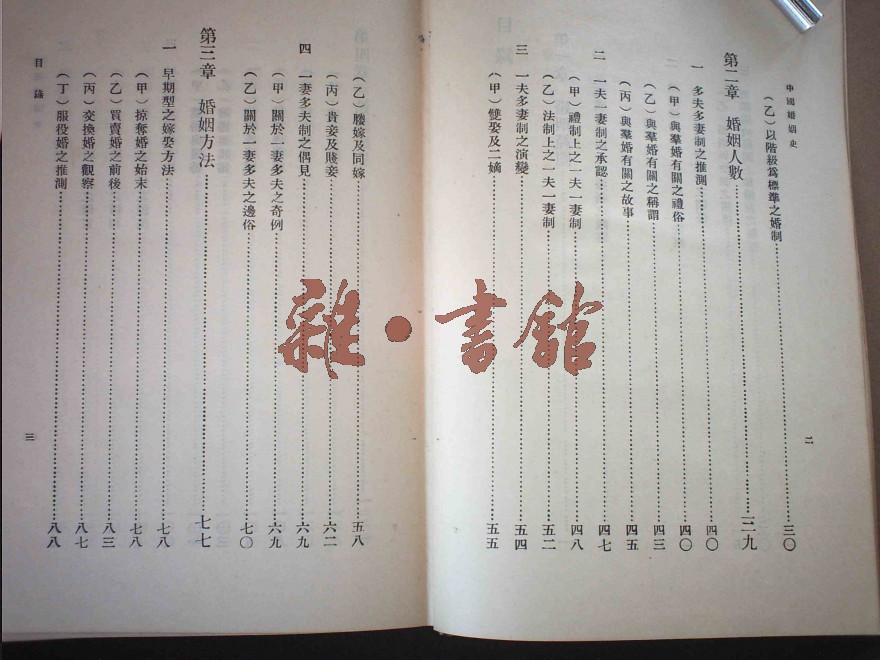 中國婚姻史
(乙)以階級爲標準之婚制…三〇
第二章 婚姻人數…三九
一 多夫多妻制之推測…四〇
(甲)與羣婚有關之禮俗…四〇
(乙)與羣婚有關之稱謂…四三
(丙)與羣婚有關之故事…四五
二 一夫一妻制之承認…四七
(甲)禮制上之一夫一妻制…四八
(乙)法制上之一夫一妻制…五二
三 一夫多妻制之演變…五四
(甲)雙娶及二嫡…五五
二
(乙)媵嫁及同嫁…五八
(丙)貴妾及賤妾…六二
四 一妻多夫制之偶見…六九
(甲)關於一妻多夫之奇例…六九
(乙)關於一妻多夫之邊俗…七〇
第三章 婚姻方法…七七
一 早期型之嫁娶方法…七八
(甲)掠奪婚之始末…七八
(乙)買賣婚之前後…八三
(丙)交換婚之觀察…八七
(丁)服役婚之推測…八八
目錄
三
雜·書館